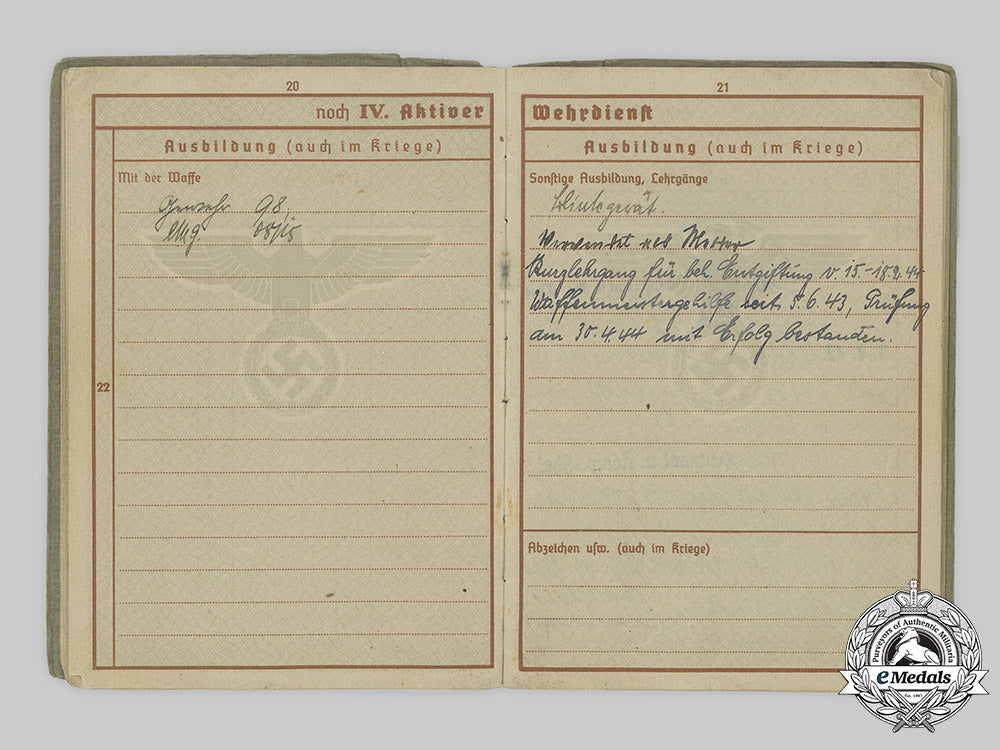 20
noch IV. Aktiver
Ausbildung (auch im Kriege)
Mit der Waffe
Gewehr 98,
lMg. 08/15
22
21
Wehrdienst
Ausbildung (auch im Kriege)
Sonstige Ausbildung, Lehrgänge
Blinkgerät.
Verwendet als
Kurzlehrgang für beh. Entgiftung v. 15.-18.2.44
Waffenmeistergehilfe seit 5.6.43, Prüfung
am 30.4.44 mit Erfolg bestanden.
Abzeichen usw. (auch im Kriege)
Purveyors of Authentic Militaria
eMedals